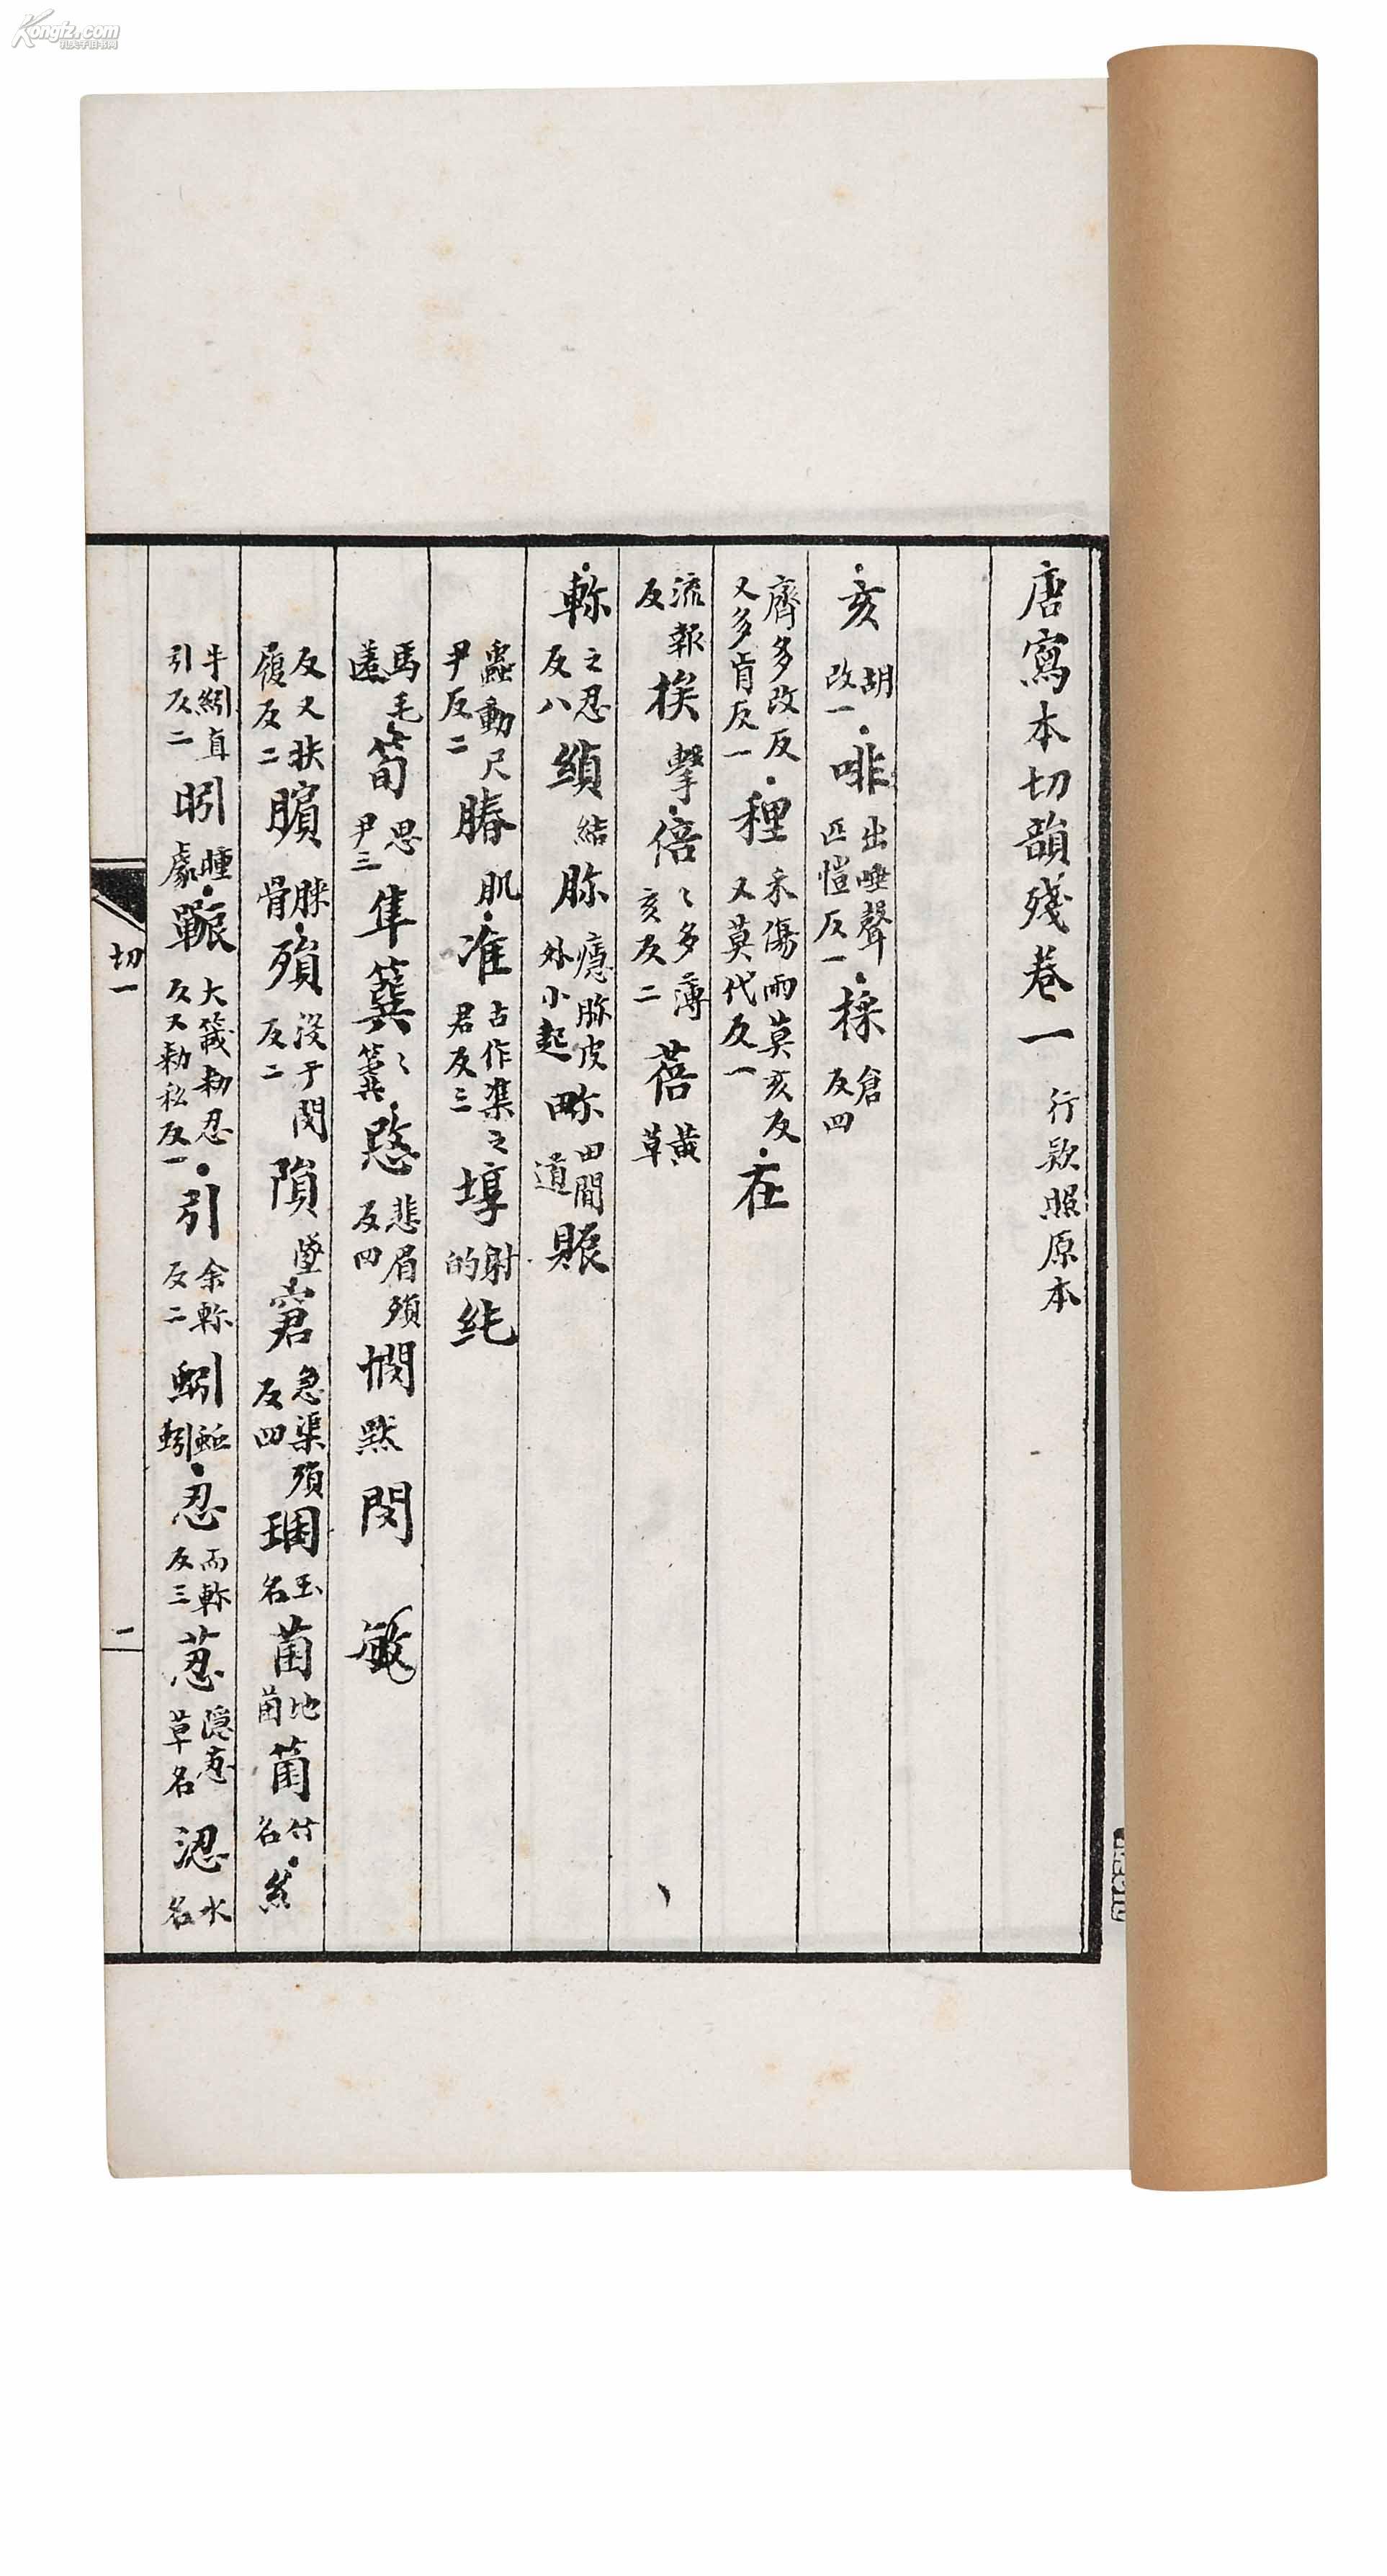 Kongfz.com
孔夫子旧书网
唐寫本切韻殘卷一 行款照原本
亥胡改一・啡出唾聲匹愷反一・採倉反四
齊多改反又多肯反一・穤禾傷雨莫亥反又莫代反一・在
流報反挨擊・倍〻多薄亥反二蓓黄草
・軫之忍反八縝結胗癮胗皮外小起畛田間道賑
蠢動尺尹反二膞肌・准古作準之君反三埻射的純
馬毛逺・筍思尹三隼簨〻簴・愍悲眉殞反四憫默閔敏
反又扶履反二臏膝骨・殞沒于閔反二隕墜窘急渠殞反四珚玉名菌地菌箘竹名・
牛紖直引反二朋瘇處・囅大笑勑忍反又勑私反一・引余軫反二蚓蚯蚓・忍而軫反三荵隠荵草名涊水名
切一
一